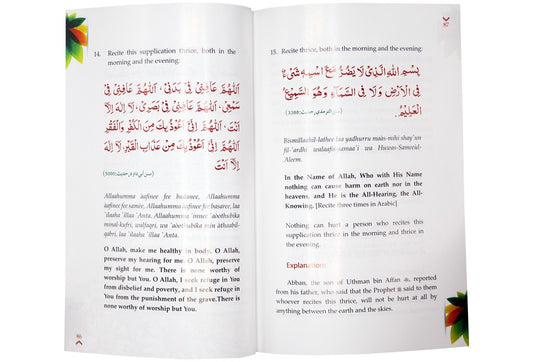 14. Recite this supplication thrice, both in the
morning and the evening:
اَللّٰهُمَّ عَافِنِيْ فِيْ بَدَنِيْ، اَللّٰهُمَّ عَافِنِيْ فِيْ
سَمْعِيْ، اَللّٰهُمَّ عَافِنِيْ فِيْ بَصَرِيْ، لَا اِلٰهَ اِلَّا
اَنْتَ، اَللّٰهُمَّ اِنِّيْ اَعُوْذُ بِكَ مِنَ الْكُفْرِ وَالْفَقْرِ
اَللّٰهُمَّ اِنِّيْ اَعُوْذُ بِكَ مِنْ عَذَابِ الْقَبْرِ، لَا اِلٰهَ
اِلَّا اَنْتَ
(سنن ابي داود حديث: 5090)
Allaahumma 'aafinee fee badanee, Allaahumma
'aafinee fee samee, Allaahumma 'aafinee fee basaree, laa
'ilaaha 'illaa 'Anta. Allaahumma 'innee 'aoothubika
minal-kufri, walfaqri, wa'aoothubika min athaabil-
qabri, laa 'ilaaha 'illaa 'Anta.
O Allah, make me healthy in body, O Allah,
preserve my hearing for me. O Allah, preserve
my sight for me. There is none worthy of
worship but You. O Allah, I seek refuge in You
from disbelief and poverty, and I seek refuge in
You from the punishment of the grave.There is
none worthy of worship but You.
86
87
15. Recite thrice, both in the morning and the evening:
بِسْمِ اللّٰهِ الَّذِيْ لَا يَضُرُّ مَعَ اسْمِهٖ شَيْءٌ
فِي الْاَرْضِ وَلَا فِي السَّمَاءِ وَهُوَ السَّمِيْعُ
الْعَلِيْمُ.
(سنن الترمذي حديث: 3388)
Bismillachil-lathee laa yadhurru maas-mihi shay'un
fil-'ardhi walaafis-samaa'i wa Huwas-Sameeul-
Aleem.
In the Name of Allah, Who with His Name
nothing can cause harm on earth nor in the
heavens, and He is the All-Hearing, the All-
Knowing. [Recite three times in Arabic]
Nothing can hurt a person who recites this
supplication thrice in the morning and thrice in
the evening.
Explanation:
Abban, the son of Uthman bin Affan, reported
from his father, who said that the Prophet ﷺ said to them
whoever recites this thrice, will not be hurt at all by
anything between the earth and the skies.